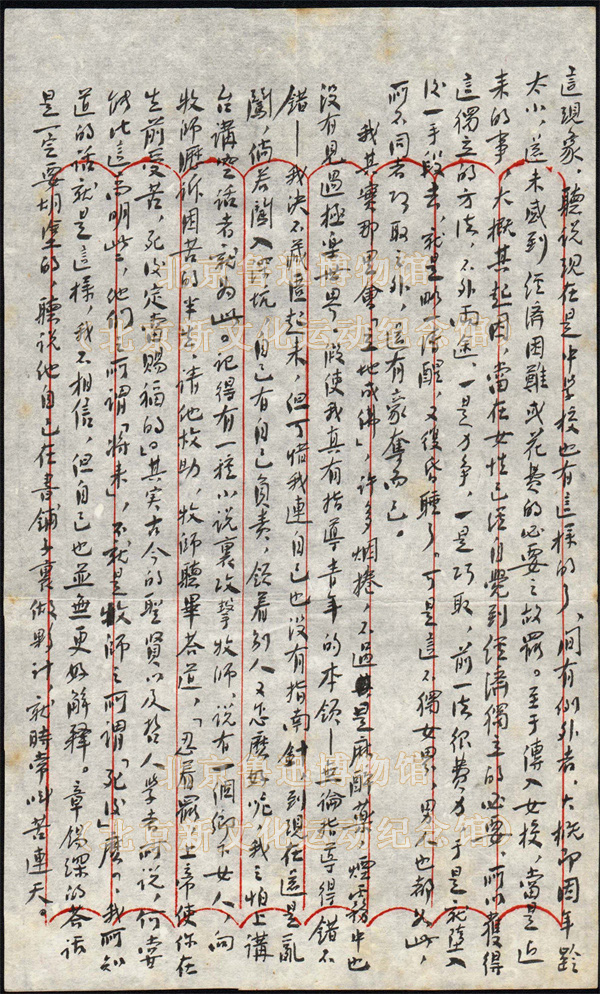 這現象，聽說現在是中學校也有這樣的了，間有例外者，大概即因年齡
太小，還未感到經濟困難或花費的必要之故罷。至于傳入女校，當是近
來的事，大概其起因，當在女性已經自覺到經濟獨立的必要，所以獲得
這獨立的方法，不外兩途，一是力爭，一是巧取，前一法很費力，于是就墮入
後一手段去，就是略一清醒，又復昏睡了。可是這不獨女界，男人也都如此，
所不同者巧取之外，還有豪奪而已。
我其實那里會「立地成佛」，許多烟捲，不過是麻醉藥，煙霧中也
沒有見過極樂世界。假使我真有指導青年的本領——無論指導得錯不
錯——我決不藏匿起來，但可惜我連自己也沒有指南針，到現在還是亂
闖，倘若闖入深坑，自己有自己負責，領着別人又怎麼好呢，我之怕上講
台講空話者就為此。記得有一種小說裏攻擊牧師，說有一個鄉下女人，向
牧師瀝訴困苦的半生，請他救助，牧師聽畢答道，「忍着罷，上帝使你在
生前受苦，死後定當賜福的。」其實古今的聖賢以及哲人學者所說，何嘗
能比這高明些，他們之所謂「將來」，不就是牧師之所謂「死後」麼？我所知
道的話就是這樣，我不相信，但自己也並無更好解釋。章錫琛的答話
是一定要胡塗的，聽說他自己在書鋪子裏做夥計，就時常叫苦連天。
北京鲁迅博物馆
（北京新文化运动纪念馆）
北京鲁迅博物馆
（北京新文化运动纪念馆）